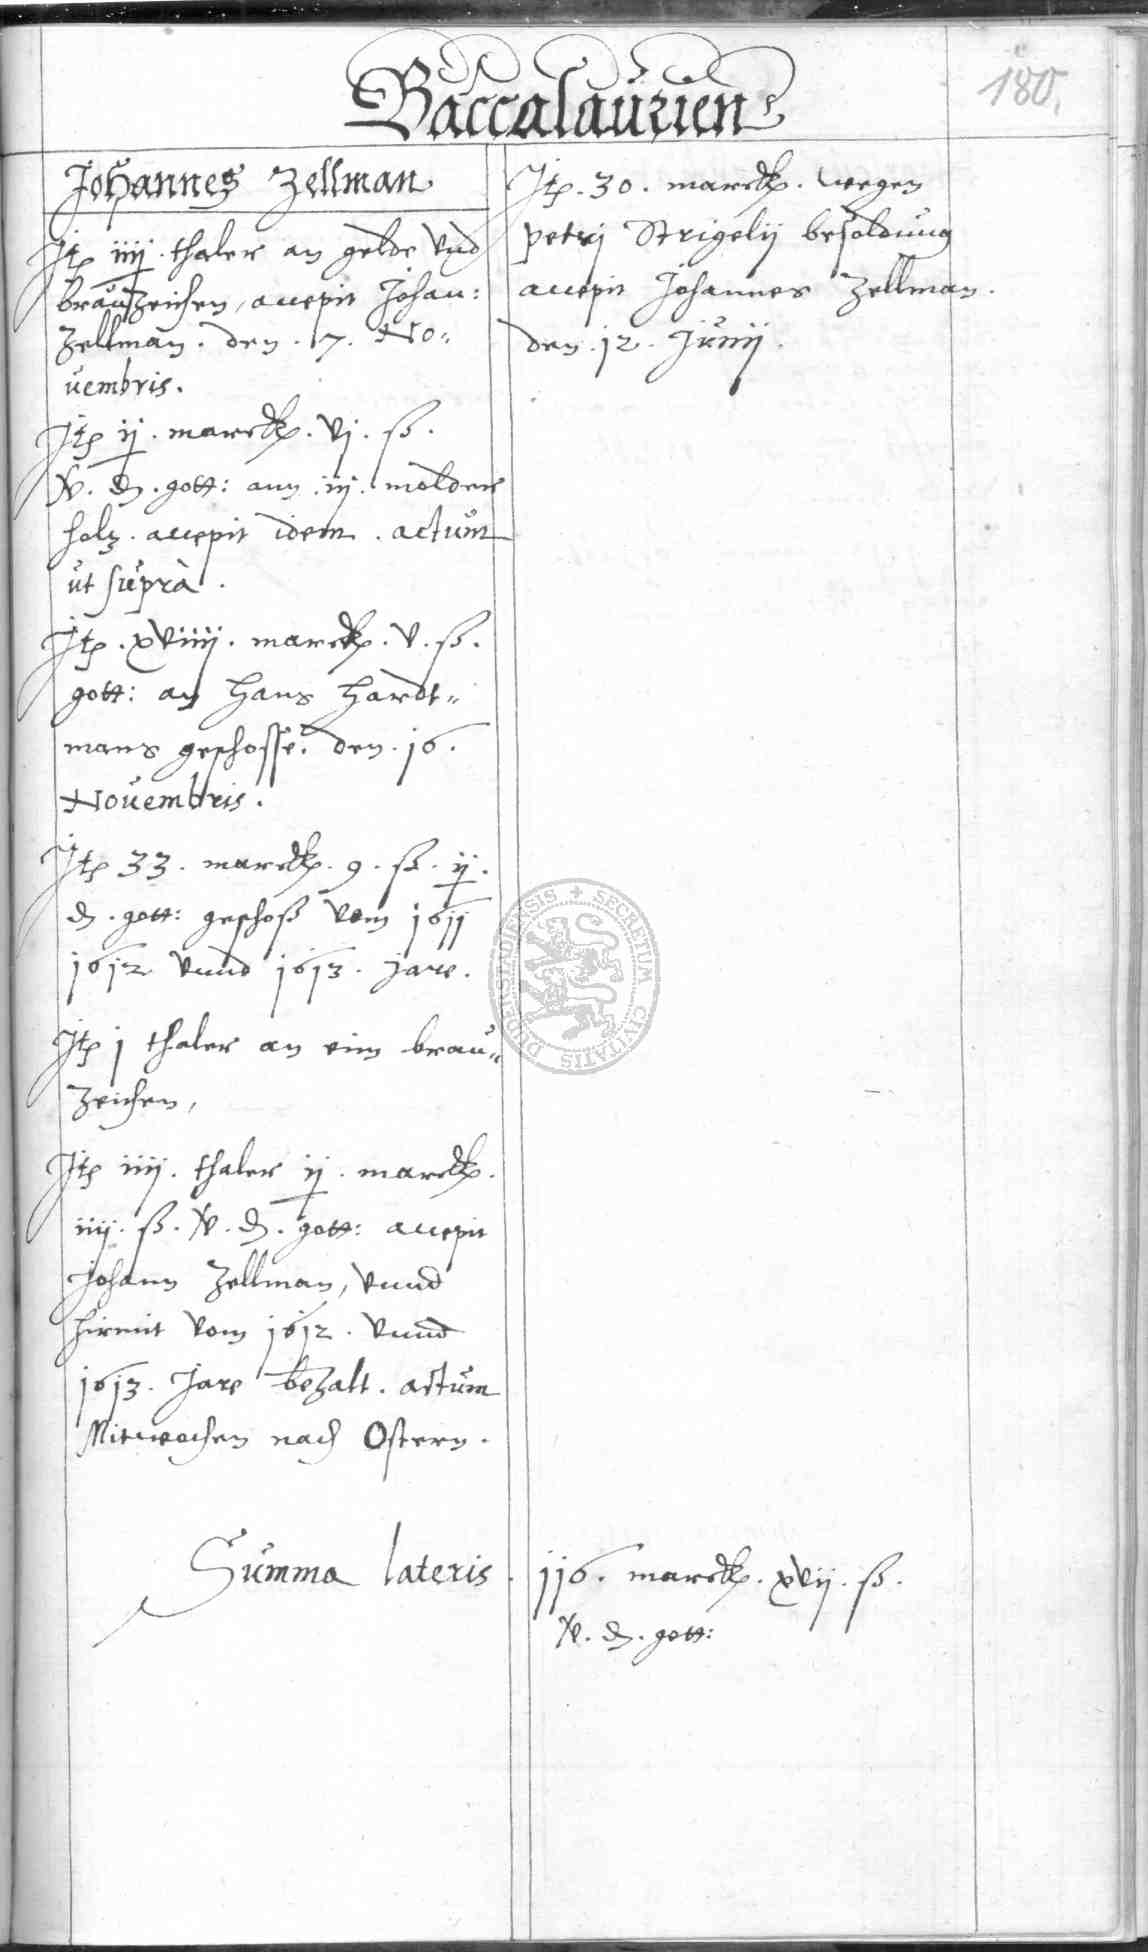 Baccalaurien
180.
Johannes Zellman
Itē iiij. thaler an gelde vnd
brauzeichen, accepit Johan:
Zellman. den. 17. No=
uembris.
Itē ij. marck. vj. ß.
v. ₰. gott: ann iij. molder
holz. accepit idem. actum
ut suprà.
Itē. xviiij. marck. v. ß.
gott: an Hans Hardt=
mans geschosse. den. 16.
Nouembris.
Itē 33. marck. 9. ß. ij.
₰. gott: geschoß vom 1611
1612 vnnd 1613. jare.
Itē j thaler an eim brau=
zeichen,
Itē iiij. thaler ij. marck.
iiij. ß. v. ₰. gott: accepit
Johann Zellman, vnnd
hirmit vom 1612. vnnd
1613. Jare bezalt. actum
Mitwochen nach Ostern.
Itē. 30. marck. wegen
petri Strigelij besoldung
accepit Johannes Zellman.
den. 12. Junij.
Summa lateris. 116. marck. xvij. ß.
v. ₰. gott:
SECRETUM CIVITATIS DUDERSTADIENSIS